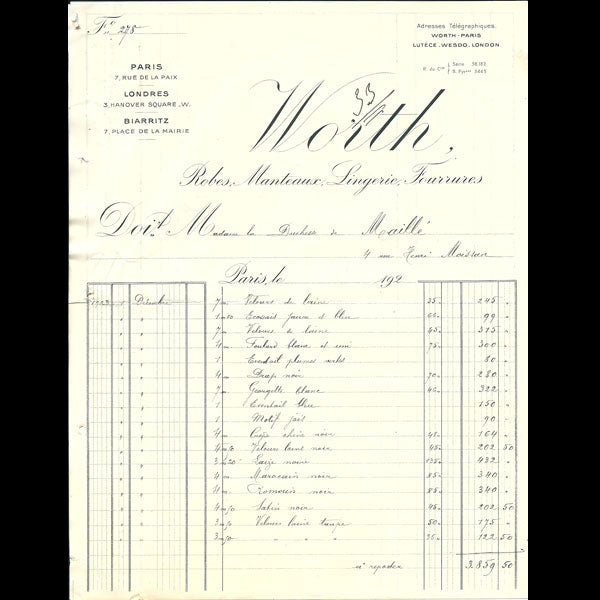 Fº 278
Adresses Télégraphiques.
WORTH-PARIS
LUTÈCE.WESDO.LONDON
R. du Cce Seine 38.182
PARIS
7, RUE DE LA PAIX
LONDRES
3, HANOVER SQUARE.W.
BIARRITZ
7, PLACE DE LA MAIRIE
Worth,
Robes, Manteaux, Lingerie, Fourrures
Doit M Madame la Duchesse de Maillé
4 rue Henri Moissan
Paris, le 192
Décembre 7m Velours de laine 35 - 245 -
1m50 Ecossais jaune et bleu 99 -
7m Velours de laine 45 - 315 -
4m Foulard blanc et uni 75 - 300 -
1 Eventail plumes 80 -
4m Drap noir 70 - 280 -
7m Georgette blanc 46 - 322 -
1 Eventail bleu 150 -
1 Motif jais 90 -
4m Crêpe chine noir 41 - 164 -
4m50 Velours laine noir 45 - 202 50
3m20 noire 135 - 432 -
4m Marocain noir 85 - 340 -
4m Romain noir 85 - 340 -
4m50 Satin noir 45 - 202 50
3m50 Velours laine 50 - 175 -
3m50 35 - 122 50
à reporter 3.859 50